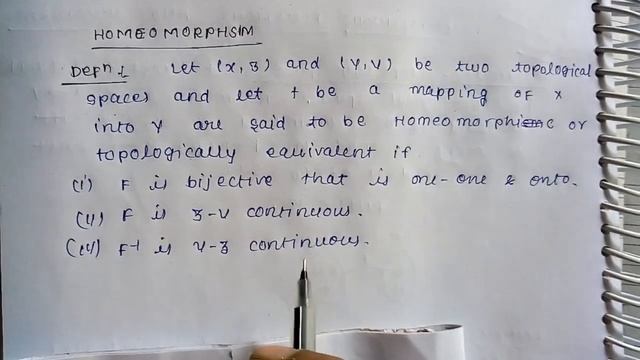 HOMEOMORPHSIM
Defn: Let (X, Ʒ) and (Y, V) be two topological
spaces and let f be a mapping of X
into Y are said to be Homeomorphic or
topologically equivalent if
(i) F is bijective that is one-one & onto.
(ii) F is Ʒ-V continuous.
(iii) F-1 is V-Ʒ continuous.